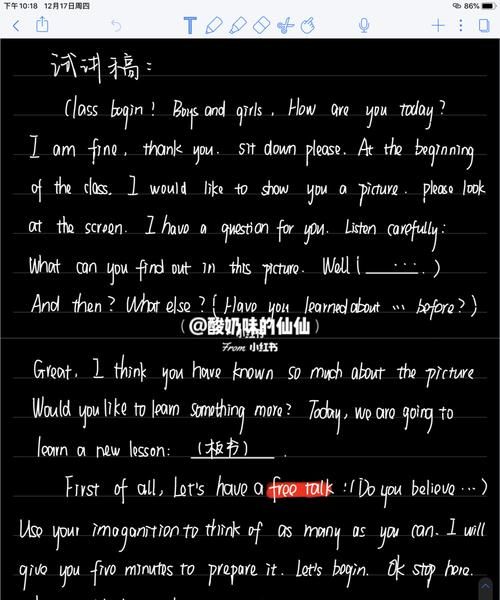 下午10:18 12月17日周四
86%
试讲稿：
Class bogin! Boys and girls, How are you today?
I am fine, thank you. sit down please. At the beginning
of the class, I would like to show you a picture. please look
at the screen. I have a question for you. Listen carefully:
What can you find out in this picture. Well (...)
And then? What else? (Have you learned about ... before?)
(@酸奶味的仙仙)
小红书
From 小红书
Great, I think you have known so much about the picture
Would you like to learn something more? Today, we are going to
learn a new lesson: (板书).
First of all, Let's have a free talk!(Do you believe...)
Use your imaganition to think of as many as you can. I will
give you five minutes to prepare it. Let's begin. Ok stop here.